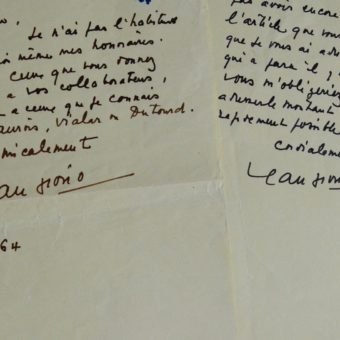 Je n'ai pas l'habitude
même mes honoraires.
ceux que vous donnez
à vos collaborateurs,
à ceux que je connais
Vialar ou Dutourd.
amicalement
Jean Giono
64
pas avoir encore
l'article que vous
que je vous ai adres
qui a paru il y
vous m'obligeriez
montant
rapidement possible
cordialement
Jean Giono